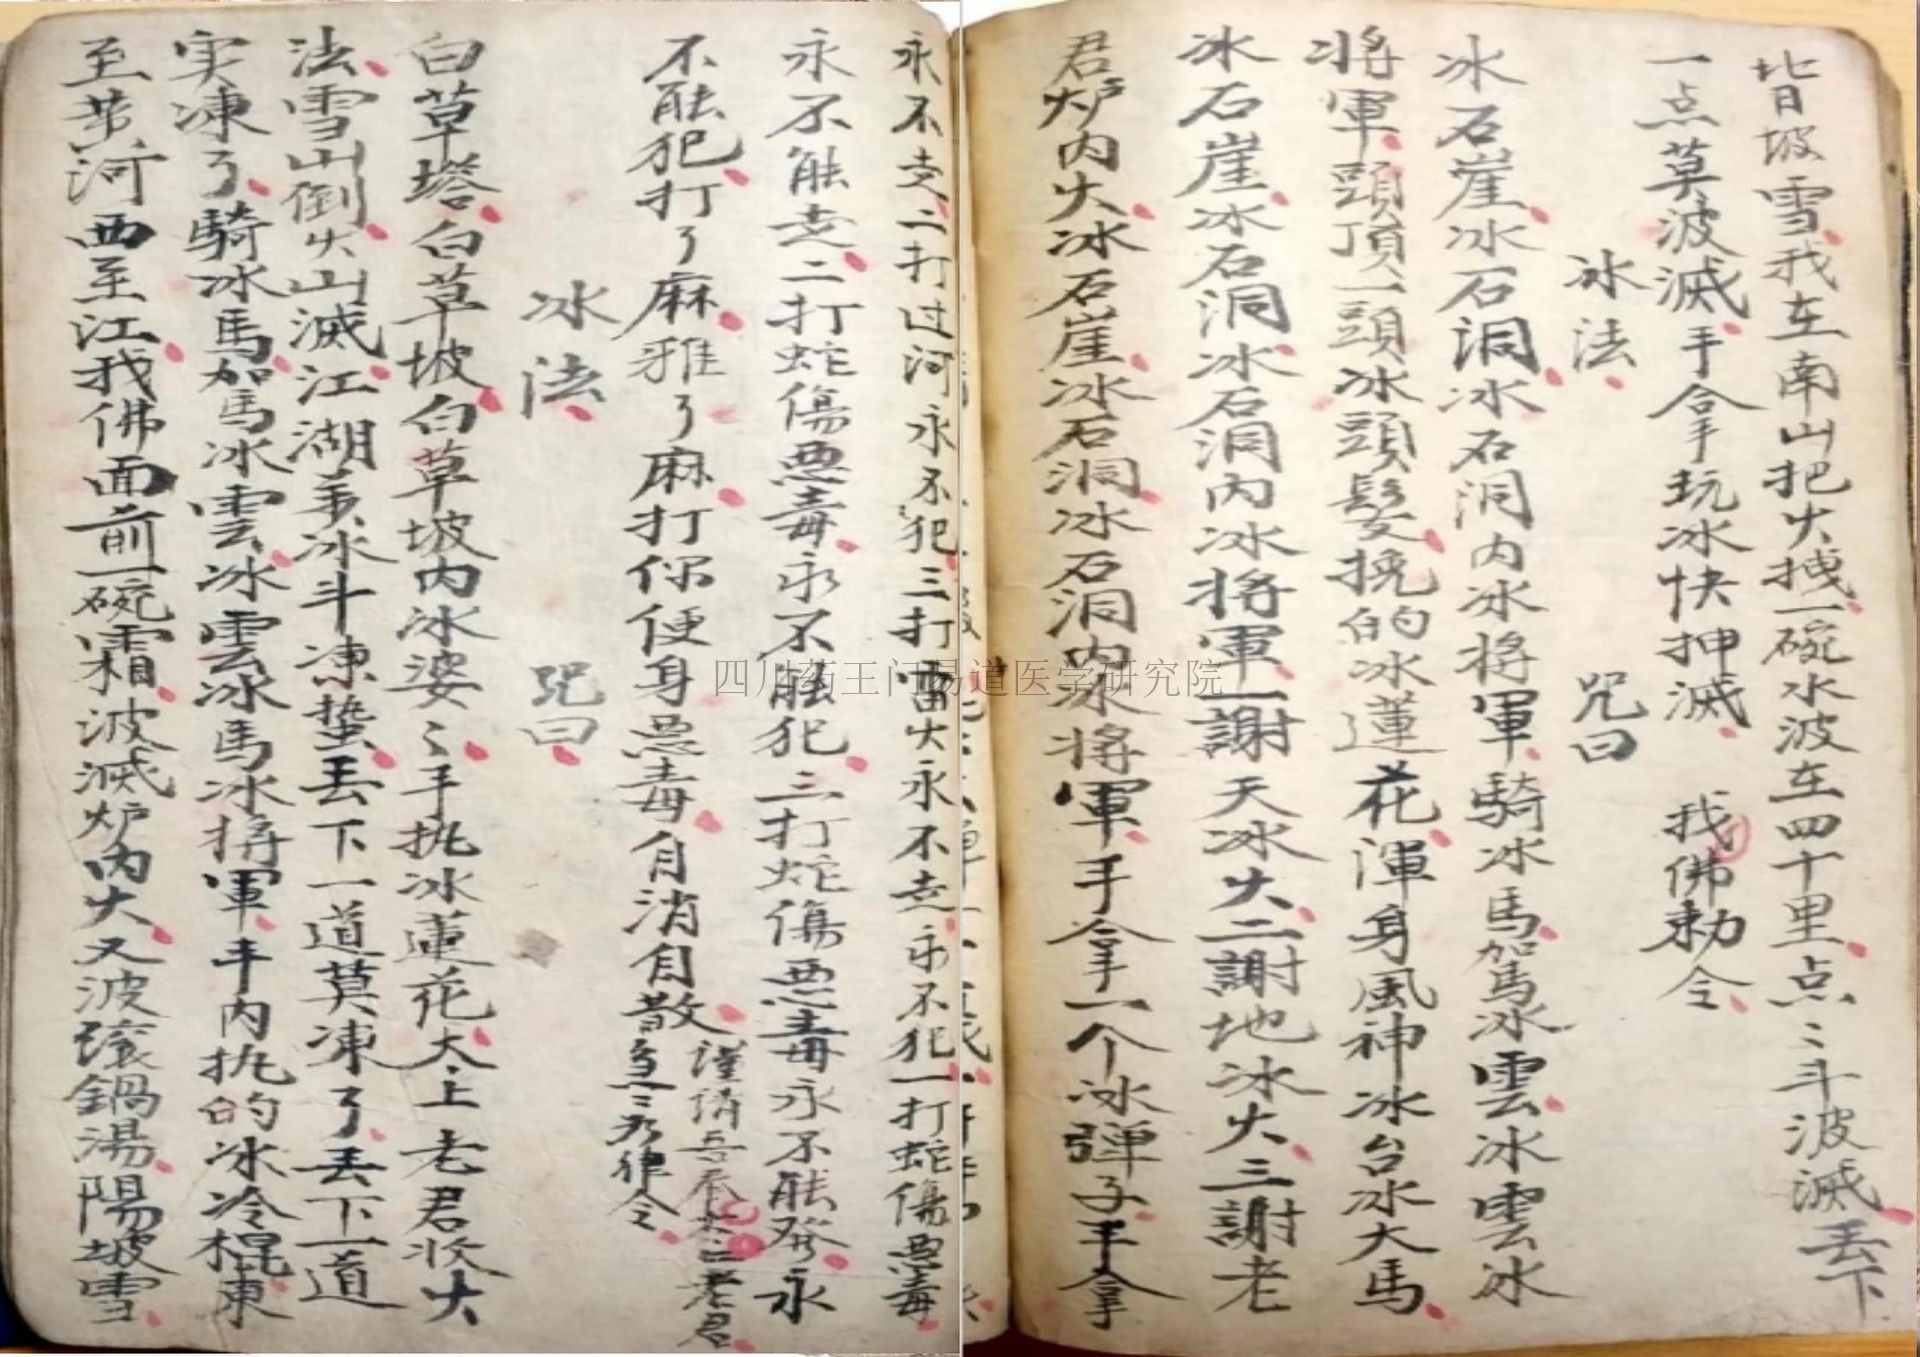 皆日坡雪我在南山把火拽一碗水波在四十里点〻斗波滅丢下
一点莫波滅手拿玩冰快押滅 我佛勅令
冰法 咒曰
冰石崖冰石洞冰石洞内冰将軍騎冰馬駕冰雲冰雲冰
将軍頭頂一頭冰頭髮挽的冰蓮花渾身風神冰台冰大馬
冰石崖冰石洞冰石洞内冰将軍一謝天冰火二謝地冰火三謝老
君炉内火冰石崖冰石洞冰石洞内冰将軍手拿一个冰弹子手拿
永不走二打过河永不犯三打雷火永不走永不犯一打蛇傷悪毒
永不能走二打蛇傷悪毒永不能犯三打蛇傷悪毒永不能發永
不能犯打了麻雅了麻打你便身悪毒自消自散
謹請吾奉太上老君
急〻如律令
冰法 咒曰
白草塔白草坡白草坡内冰婆〻手执冰蓮花太上老君收火
法雪山倒火山滅江湖多冰斗凍蛰丢下一道莫凍了丢下一道
実凍了騎冰馬駕冰雲冰雲冰馬冰将軍手内执的冰冷棍東
至黄河西至江我佛面前一碗霜波滅炉内火又波滾鍋湯陽坡雪
四川药王门易道医学研究院